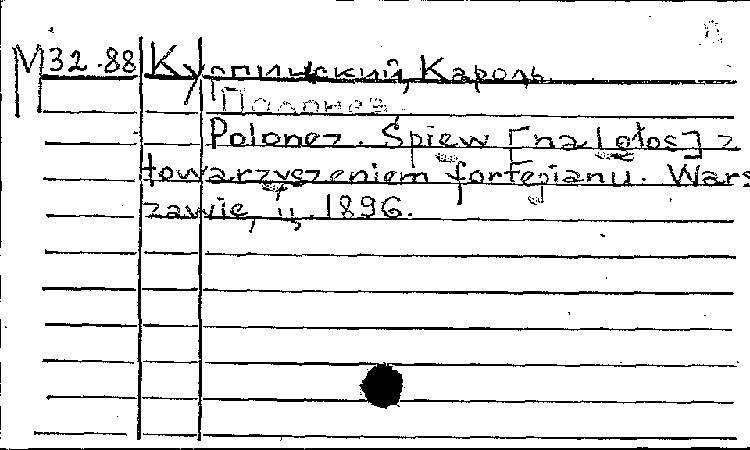 М32-88 Курпинский, Кароль.
Полонез.
Polonez. Śpiew [na 1 głos] z
towarzyszeniem fortepianu. Wars
zawie, ц. 1896.